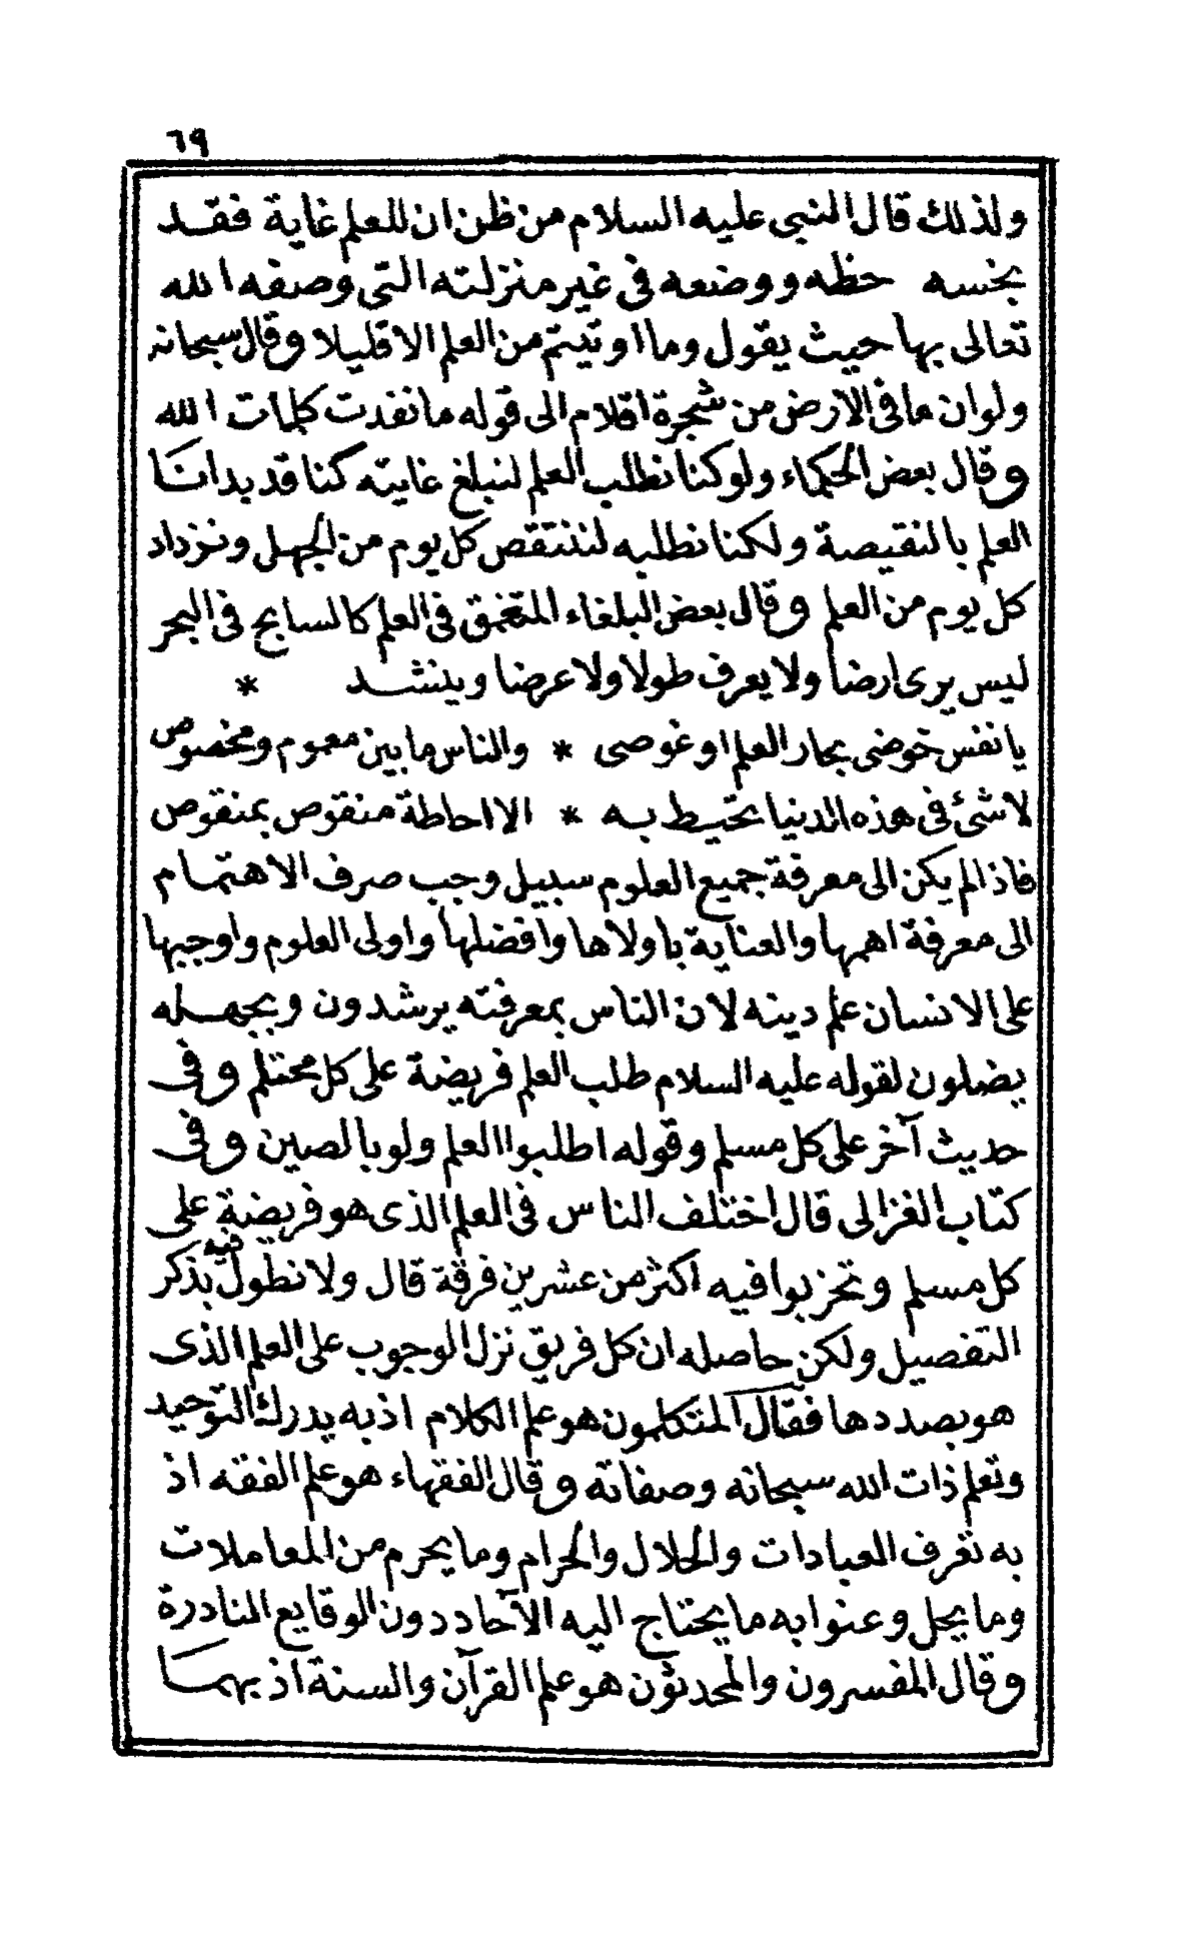 ٦٩
ولذلك قال النبى عليه السلام من ظن ان للعلم غاية فقد
بخسه حظه ووضعه فى غير منزلته التى وصفه الله
تعالى بها حيث يقول وما اوتيتم من العلم الا قليلا وقال سبحانه
ولو ان ما فى الارض من شجرة اقلام الى قوله ما نفدت كلمات الله
وقال بعض الحكماء ولو كنا نطلب العلم لنبلغ غايته كنا قد بدانا
العلم بالنقيصة ولكنا نطلبه لننتقص كل يوم من الجهل ونزداد
كل يوم من العلم وقال بعض البلغاء المتعمق فى العلم كالسابح فى البحر
ليس يرى ارضا ولا يعرف طولا ولا عرضا وينشد *
يا نفس خوضى بحار العلم او غوصى * والناس ما بين معموم ومخصوص
لا شئ فى هذه الدنيا تحيط به * الا احاطة منقوص بمنقوص
فاذا لم يكن الى معرفة جميع العلوم سبيل وجب صرف الاهتمام
الى معرفة اهمها والعناية باولاها وافضلها واولى العلوم واوجبها
على الانسان علم دينه لان الناس بمعرفته يرشدون وبجهله
يضلون لقوله عليه السلام طلب العلم فريضة على كل محتلم وفى
حديث آخر على كل مسلم وقوله اطلبوا العلم ولو بالصين وفى
كتاب الغزالى قال اختلف الناس فى العلم الذى هو فريضة على
كل مسلم وتحزبوا فيه اكثر من عشرين فرقة قال ولا نطول فيه بذكر
التفصيل ولكن حاصله ان كل فريق نزل الوجوب على العلم الذى
هو بصددها فقال المتكلمون هو علم الكلام اذ به يدرك التوحيد
وتعلم ذات الله سبحانه وصفاته وقال الفقهاء هو علم الفقه اذ
به تعرف العبادات والحلال والحرام وما يحرم من المعاملات
وما يحل وعنوا به ما يحتاج اليه الآحاد دون الوقايع النادرة
وقال المفسرون والمحدثون هو علم القرآن والسنة اذ بهما